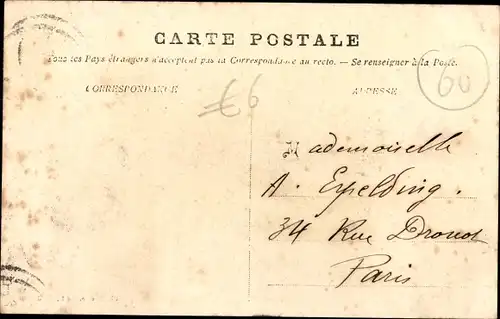 CARTE POSTALE
Tous les Pays étrangers n'acceptent pas la Correspondance au recto. — Se renseigner à la Poste.
CORRESPONDANCE
ADRESSE
€6
60
Mademoiselle
A. Expelding.
34 Rue Drouot
Paris